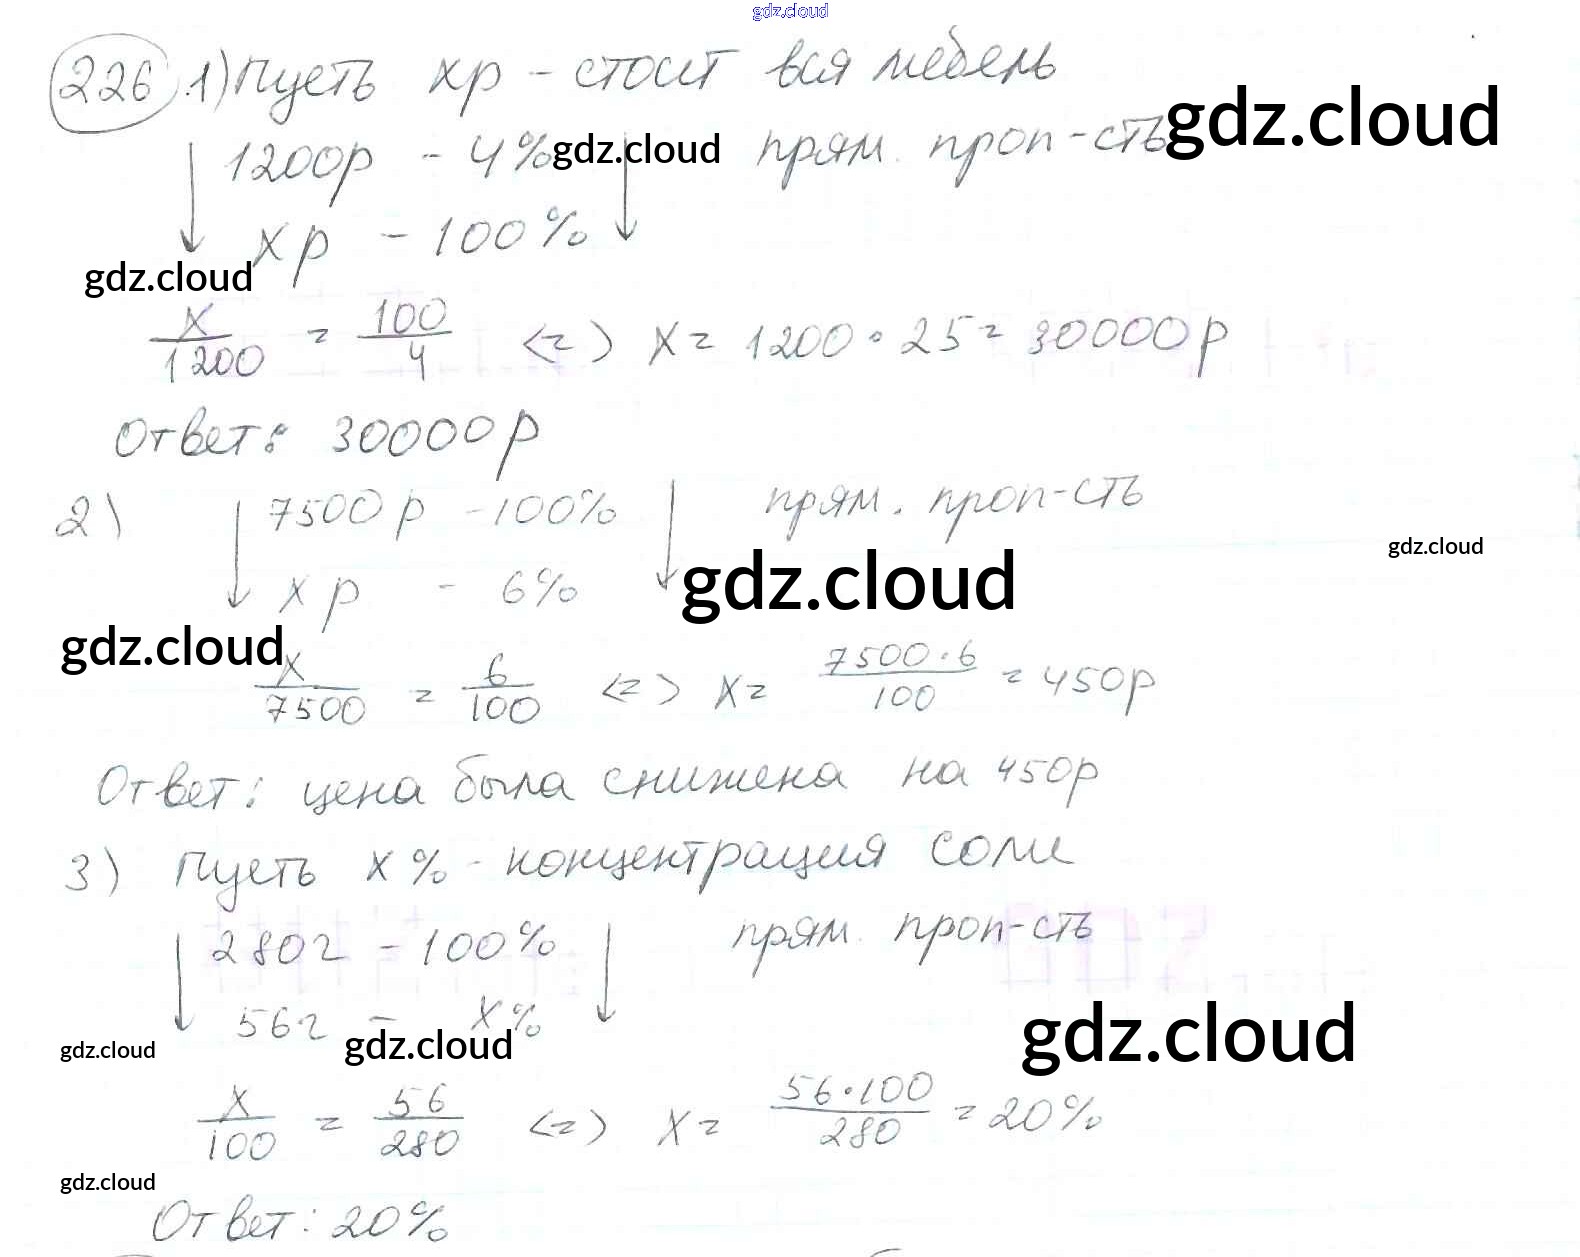 gdz.cloud
226 1) Пусть xр - стоит вся мебель
gdz.cloud
↓ 1200р - 4% ↓ прям. проп-сть
gdz.cloud
xр - 100%
gdz.cloud
x/1200 = 100/4 <=> x = 1200 · 25 = 30000р
Ответ: 30000р
2) ↓ 7500р - 100% ↓ прям. проп-сть
gdz.cloud
xр - 6%
gdz.cloud
gdz.cloud
x/7500 = 6/100 <=> x = 7500·6/100 = 450р
Ответ: цена была снижена на 450р
3) Пусть x% - концентрация соли
↓ 280г - 100% ↓ прям. проп-сть
56г - x%
gdz.cloud
gdz.cloud
gdz.cloud
x/100 = 56/280 <=> x = 56·100/280 = 20%
gdz.cloud
Ответ: 20%